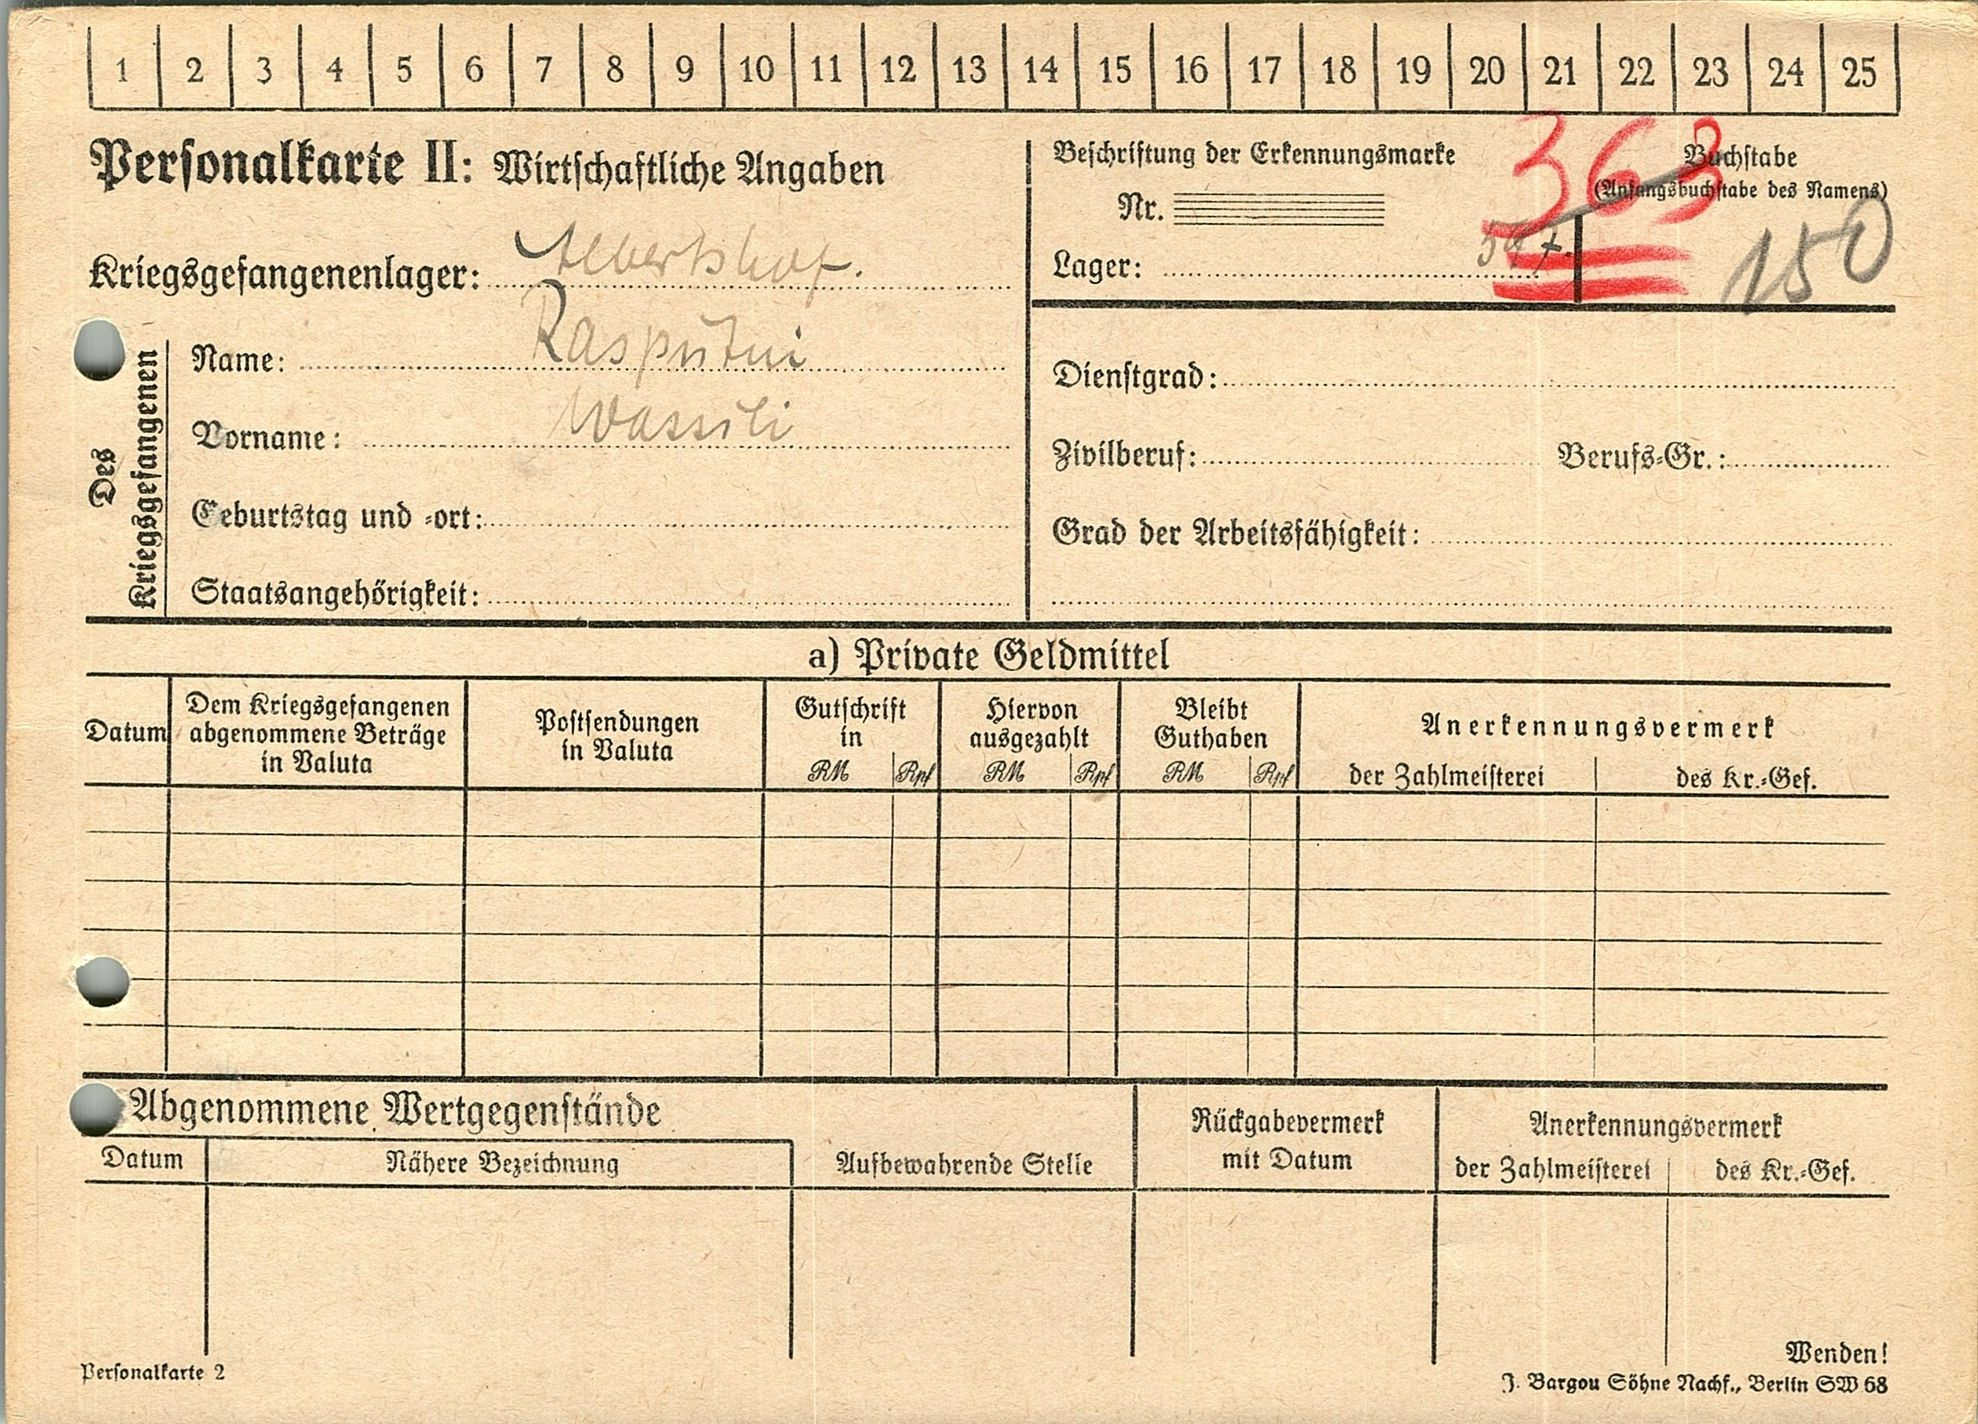 1 2 3 4 5 6 7 8 9 10 11 12 13 14 15 16 17 18 19 20 21 22 23 24 25
Personalkarte II: Wirtschaftliche Angaben
Kriegsgefangenenlager: Albertshof.
Des Kriegsgefangenen
Name: Rasputin
Vorname: Wassili
Geburtstag und -ort:
Staatsangehörigkeit:
Beschriftung der Erkennungsmarke
Nr.
363
Buchstabe
(Anfangsbuchstabe des Namens)
Lager:
150
Dienstgrad:
Zivilberuf: Berufs-Gr.:
Grad der Arbeitsfähigkeit:
a) Private Geldmittel
Datum
Dem Kriegsgefangenen
abgenommene Beträge
in Valuta
Postsendungen
in Valuta
Gutschrift
in
RM Rpf
Hiervon
ausgezahlt
RM Rpf
Bleibt
Guthaben
RM Rpf
Anerkennungsvermerk
der Zahlmeisterei des Kr.-Gef.
Abgenommene Wertgegenstände
Datum Nähere Bezeichnung
Aufbewahrende Stelle
Rückgabevermerk
mit Datum
Anerkennungsvermerk
der Zahlmeisterei des Kr.-Gef.
Wenden!
Personalkarte 2
J. Bargou Söhne Nachf., Berlin SW 68